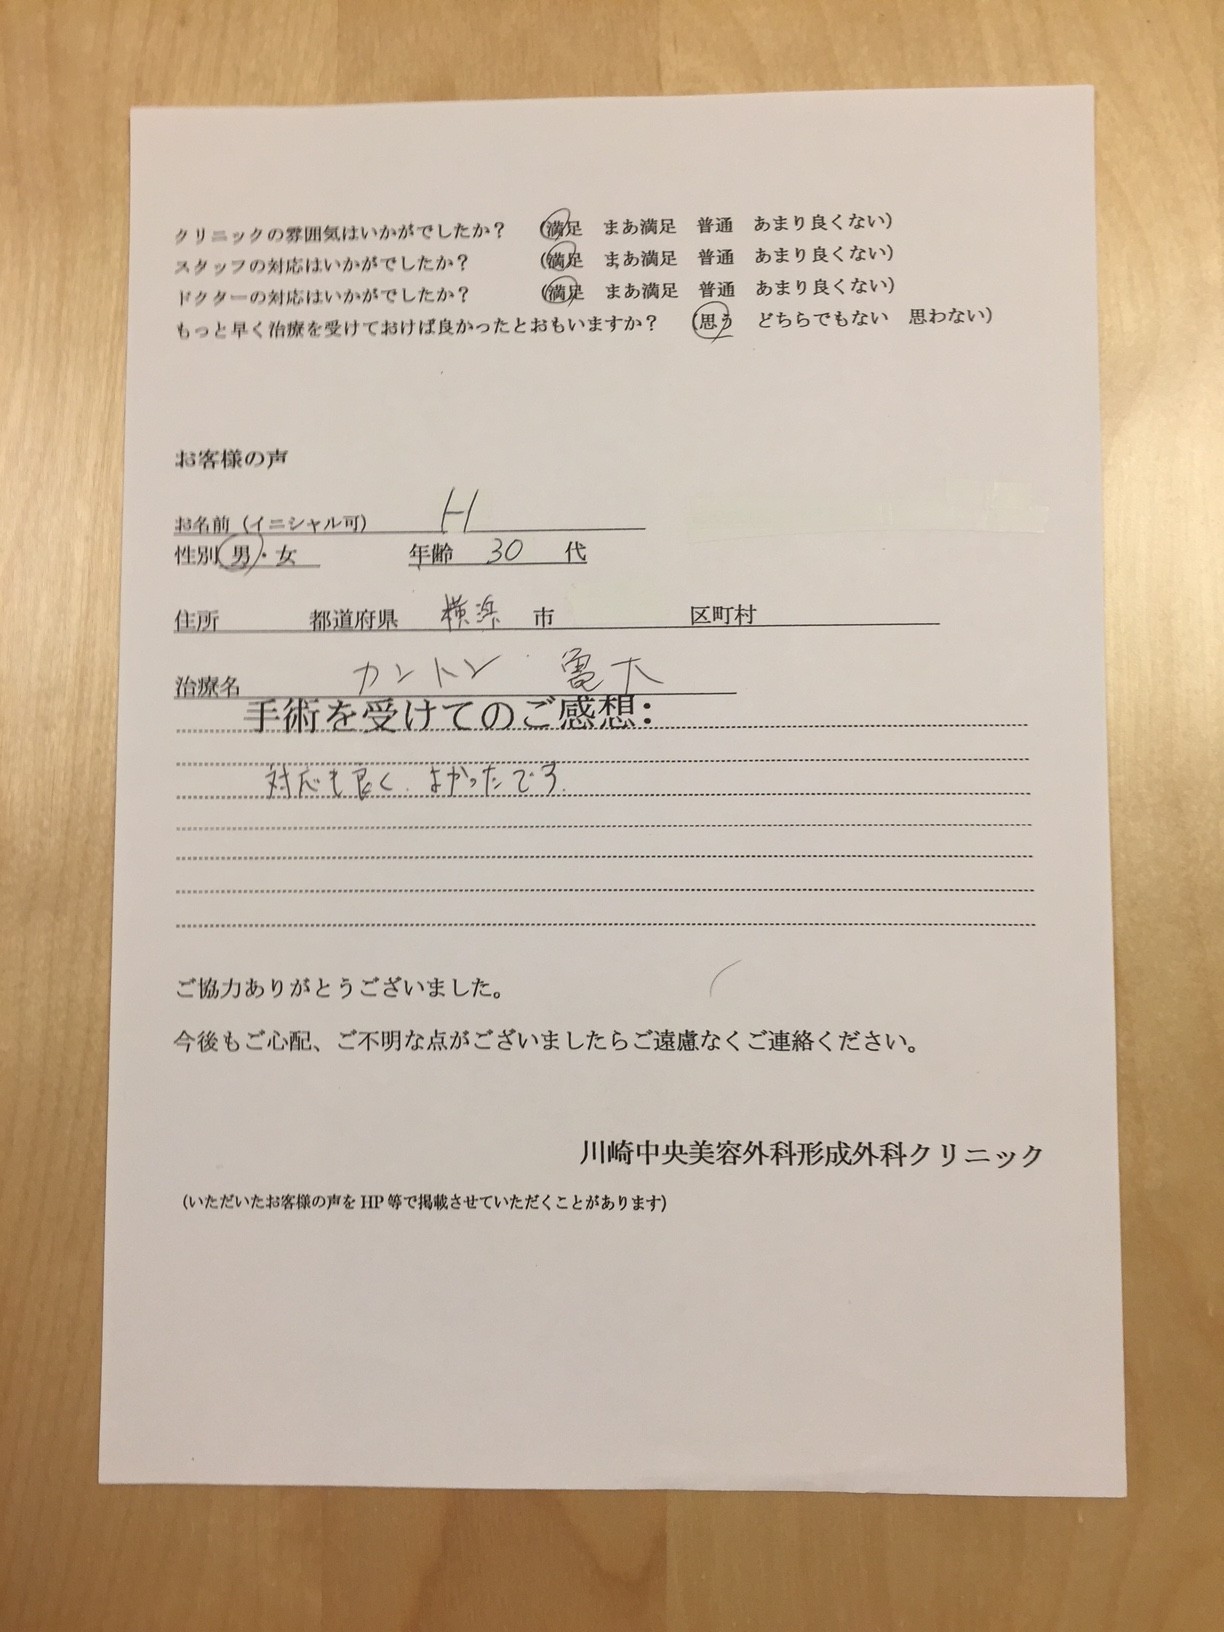 クリニックの雰囲気はいかがでしたか？ （満足 まあ満足 普通 あまり良くない）
スタッフの対応はいかがでしたか？ （満足 まあ満足 普通 あまり良くない）
ドクターの対応はいかがでしたか？ （満足 まあ満足 普通 あまり良くない）
もっと早く治療を受けておけば良かったとおもいますか？ （思う どちらでもない 思わない）
お客様の声
お名前（イニシャル可） H
性別 男・女 年齢 30 代
住所 都道府県 横浜 市 区町村
治療名 カントン 亀大
手術を受けてのご感想:
対応も良く、よかったです.
ご協力ありがとうございました。
今後もご心配、ご不明な点がございましたらご遠慮なくご連絡ください。
川崎中央美容外科形成外科クリニック
（いただいたお客様の声を HP 等で掲載させていただくことがあります）